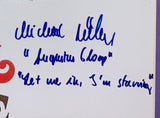 Michael Böllner
"Augustus Gloop"
"Let me in, I'm starving"